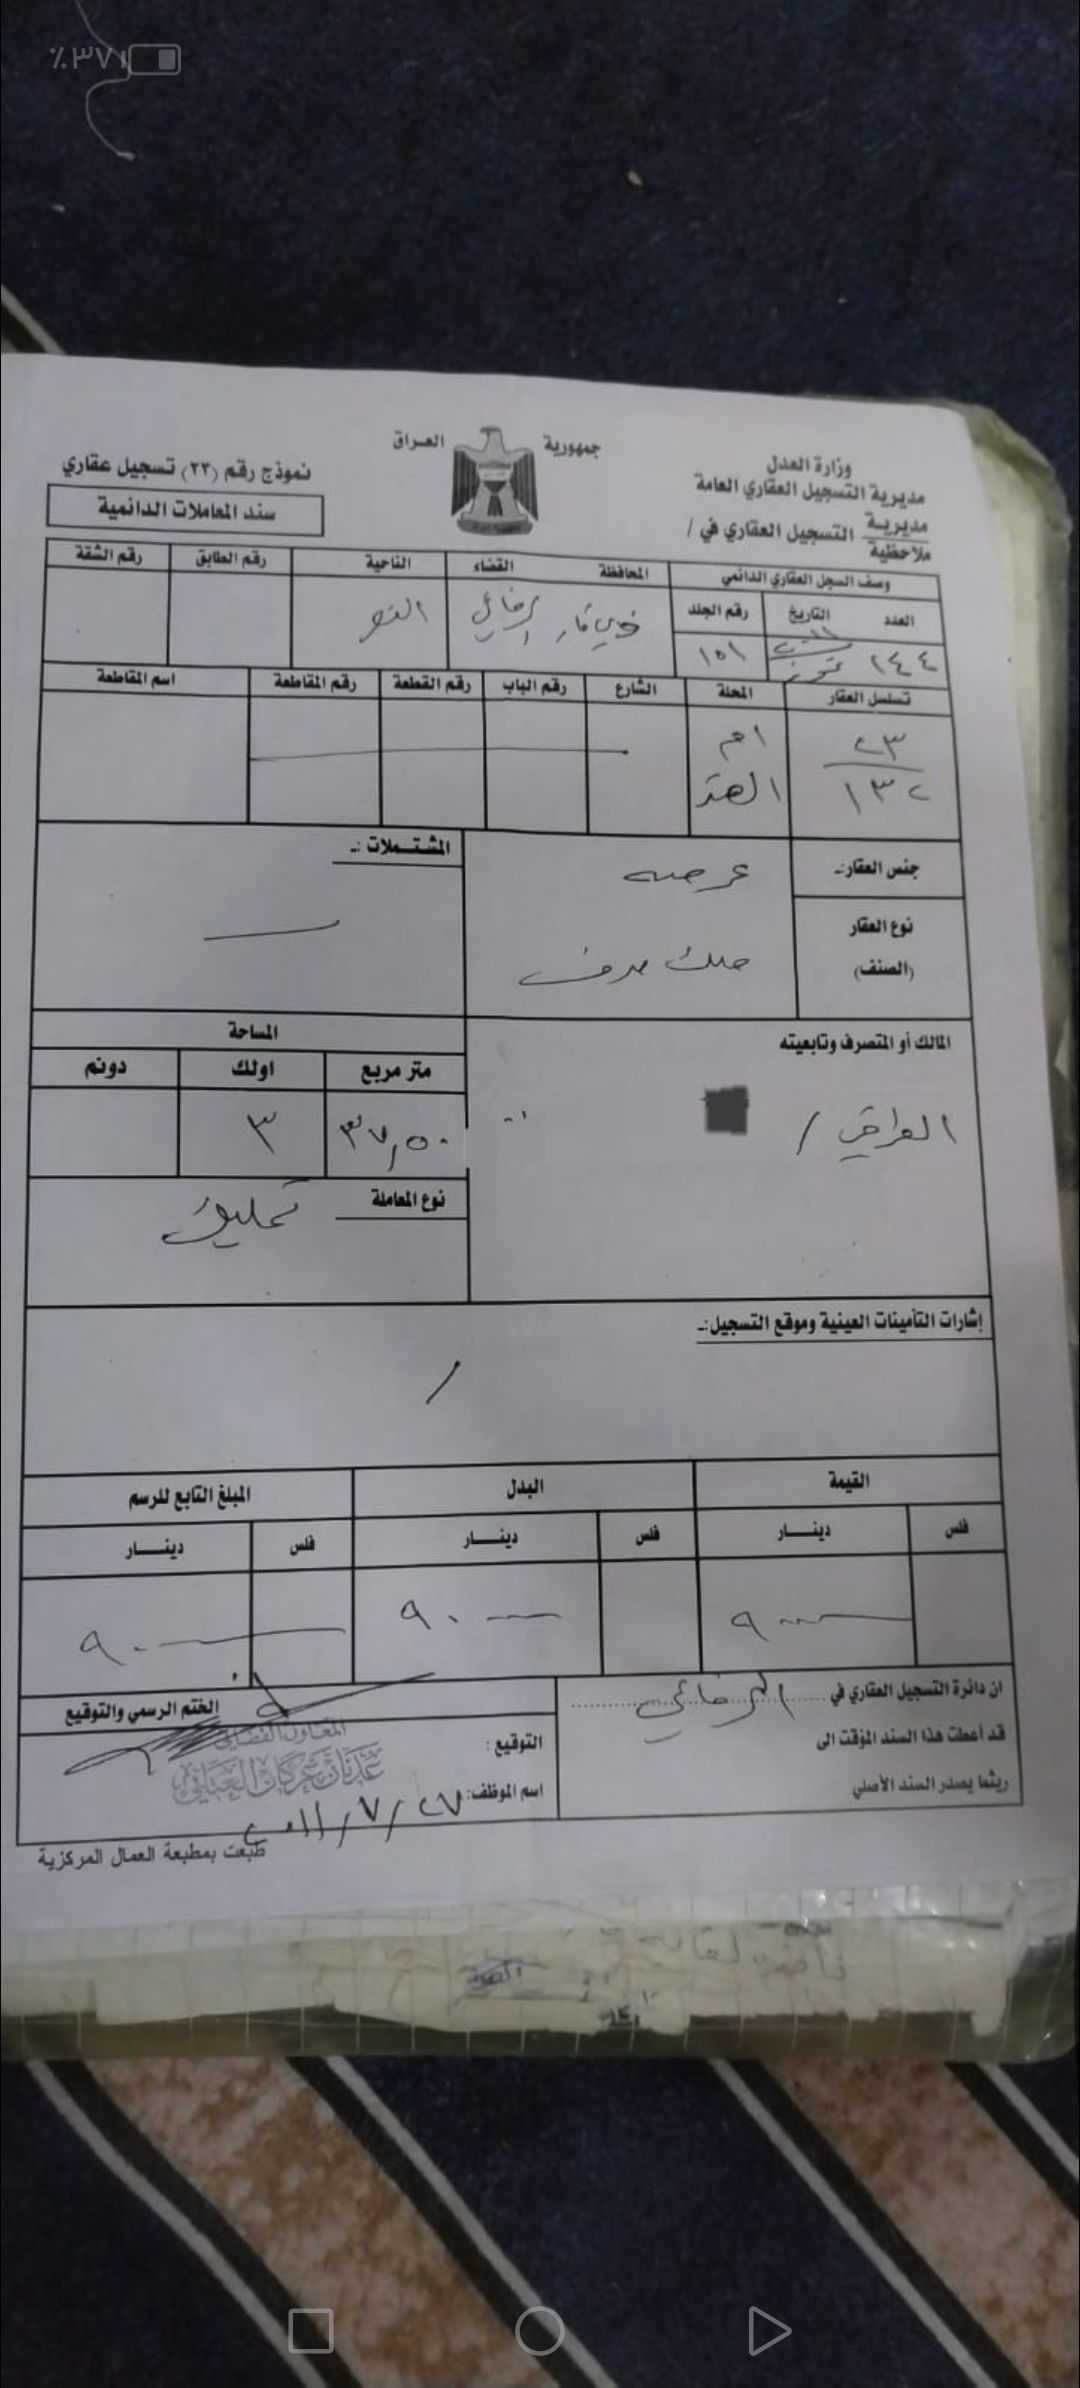 ٪٣٧
جمهورية العراق
وزارة العدل
مديرية التسجيل العقاري العامة
مديرية
ملاحظية
التسجيل العقاري في /
نموذج رقم (٢٢) تسجيل عقاري
سند المعاملات الدائمية
وصف السجل العقاري الدائمي
المحافظة القضاء الناحية رقم الطابق رقم الشقة
العدد التاريخ رقم الجلد
ذي قار الرفاعي النصر
٢٤٤ تموز ١٥١
تسلسل العقار المحلة الشارع رقم الباب رقم القطعة رقم المقاطعة اسم المقاطعة
٢٣
١٣٢
ام
جنس العقار:ـ عرصه المشتملات :ـ
نوع العقار
(الصنف) ملك صرف
المالك أو المتصرف وتابعيته المساحة
متر مربع اولك دونم
العراقي / ٣٧,٥٠ ٣
نوع المعاملة تمليك
إشارات التأمينات العينية وموقع التسجيل:ـ
/
القيمة البدل المبلغ التابع للرسم
فلس دينـــار فلس دينـــار فلس دينـــار
ان دائرة التسجيل العقاري في الرفاعي
قد أعطت هذا السند المؤقت الى
ريثما يصدر السند الأصلي
الختم الرسمي والتوقيع
التوقيع :
اسم الموظف:
٢٠١١/٧/٢٧
طبعت بمطبعة العمال المركزية